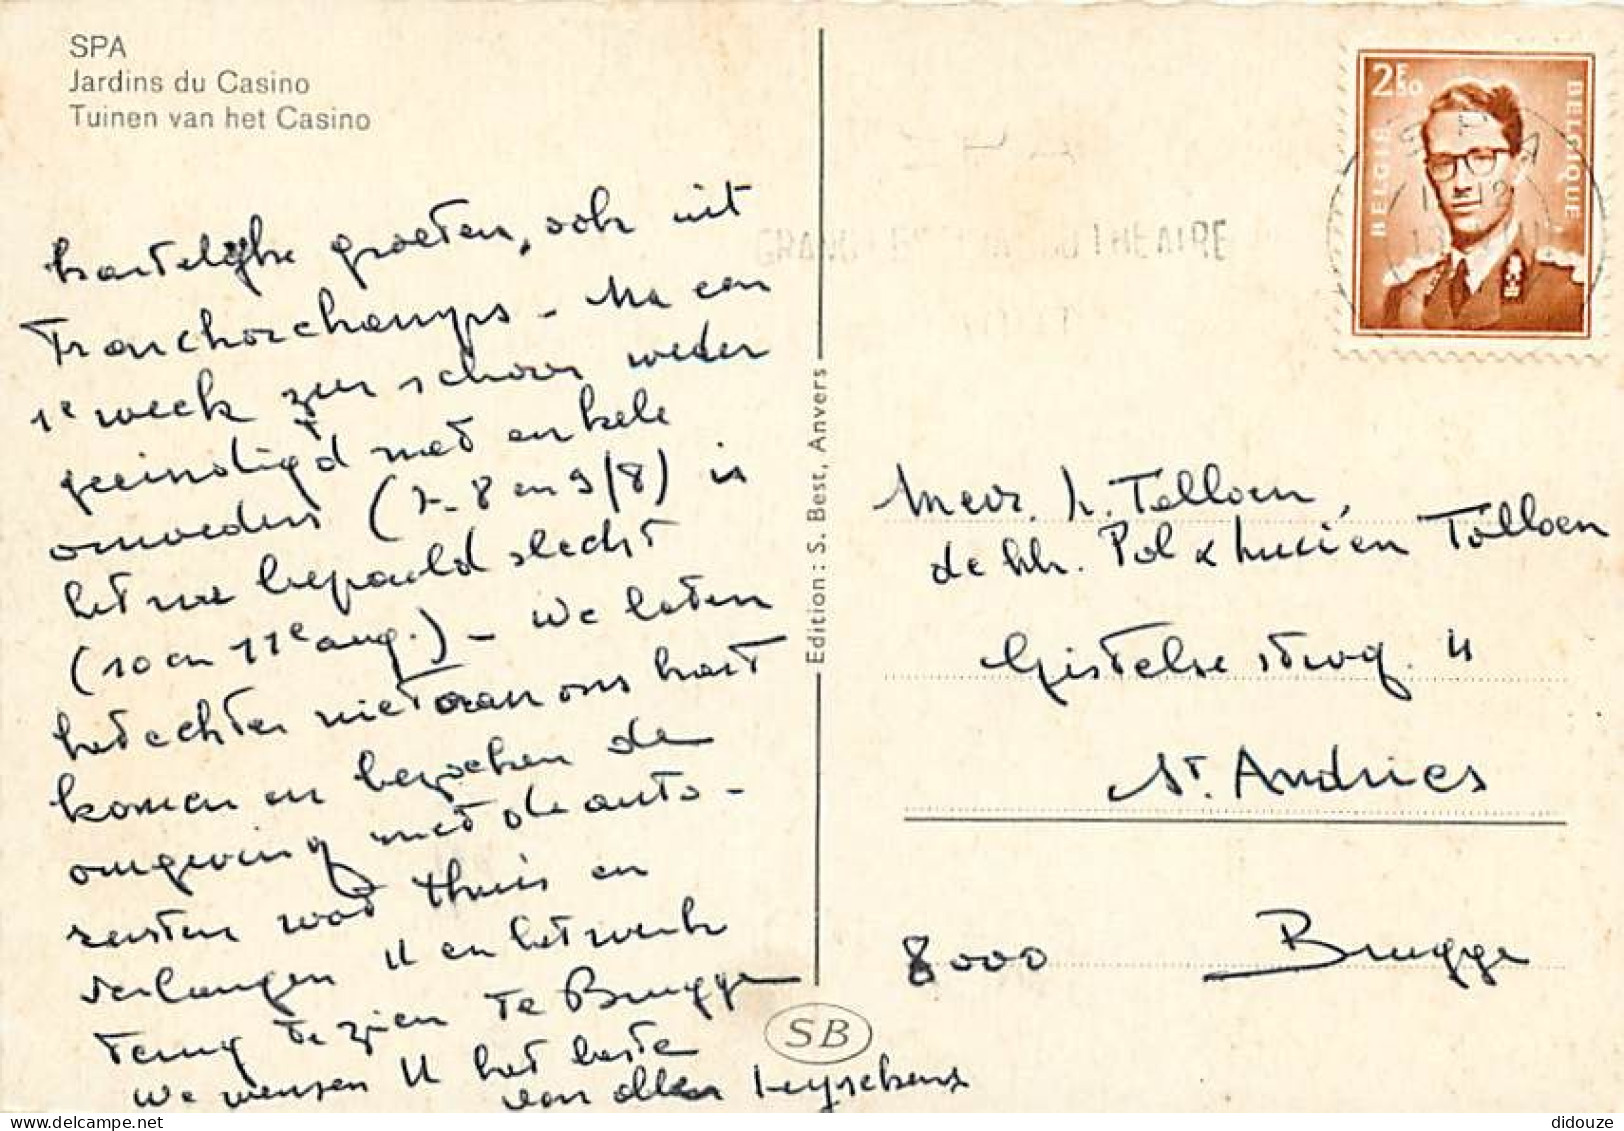 SPA
Jardins du Casino
Tuinen van het Casino
hartelijke groeten, ook uit
Franchorchamps - Na een
1e week zeer schoon weder
geeindigd met enkele
onweders (7-8 en 9/8) is
het nu bepaald slecht
(10 en 11e aug.) - We laten
het echter niet aan ons hart
komen en bezoeken de
omgeving met de auto -
rusten wat thuis en
verlangen U en het werk
terug te zien te Brugge
We wensen U het beste
van allen
Edition : S. Best, Anvers
SB
2F50
BELGIË
BELGIQUE
SPA
12
GRAND THEATRE
Mevr. L. Tolloen,
de hh. Pol & Lucien Tolloen
Gistelse stwg. 4
St. Andries
8000 Brugge
didouze